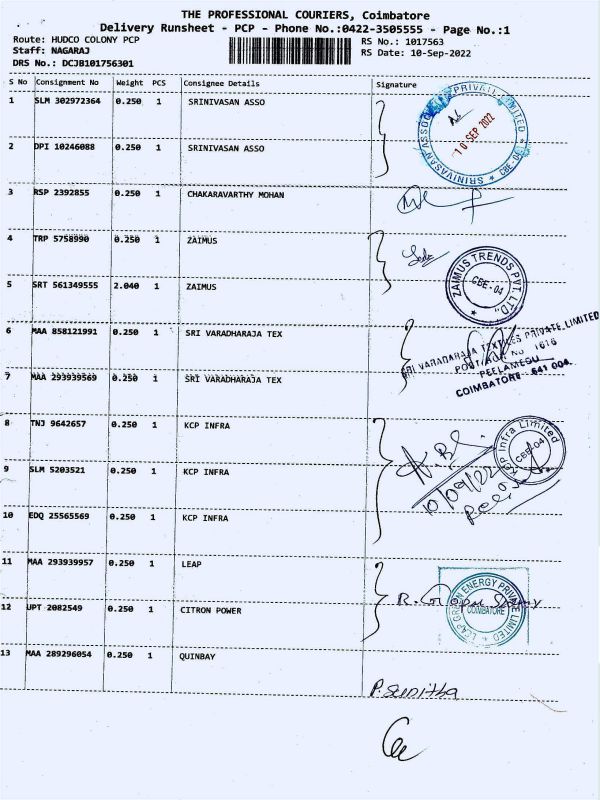 THE PROFESSIONAL COURIERS, Coimbatore
Delivery Runsheet - PCP - Phone No.:0422-3505555 - Page No.:1
Route: HUDCO COLONY PCP
RS No.: 1017563
Staff: NAGARAJ
RS Date: 10-Sep-2022
DRS No.: DCJB101756301
S No Consignment No Weight PCS Consignee Details Signature
1 SLM 302972364 0.250 1 SRINIVASAN ASSO
SRINIVASAN ASSOC PRIVATE LIMITED
10 SEP 2022
CBE-04
2 DPI 10246088 0.250 1 SRINIVASAN ASSO
3 RSP 2392855 0.250 1 CHAKARAVARTHY MOHAN
4 TRP 5758990 0.250 1 ZAIMUS
ZAIMUS TRENDS PVT. LTD.,
CBE-04
5 SRT 561349555 2.040 1 ZAIMUS
6 MAA 858121991 0.250 1 SRI VARADHARAJA TEX
SRI VARADARAJA TEXTILES PRIVATE LIMITED
POST BAG No 1616
PEELAMEDU
COIMBATORE - 641 004.
7 MAA 293939569 0.250 1 SRI VARADHARAJA TEX
8 TNJ 9642657 0.250 1 KCP INFRA
KCP Infra Limited
CBE-04
10/09/22
9 SLM 5203521 0.250 1 KCP INFRA
10 EDQ 25565569 0.250 1 KCP INFRA
11 MAA 293939957 0.250 1 LEAP
LEAP GREEN ENERGY PRIVATE LIMITED
COIMBATORE
12 UPT 2082549 0.250 1 CITRON POWER
13 MAA 289296054 0.250 1 QUINBAY
P. Sunitha